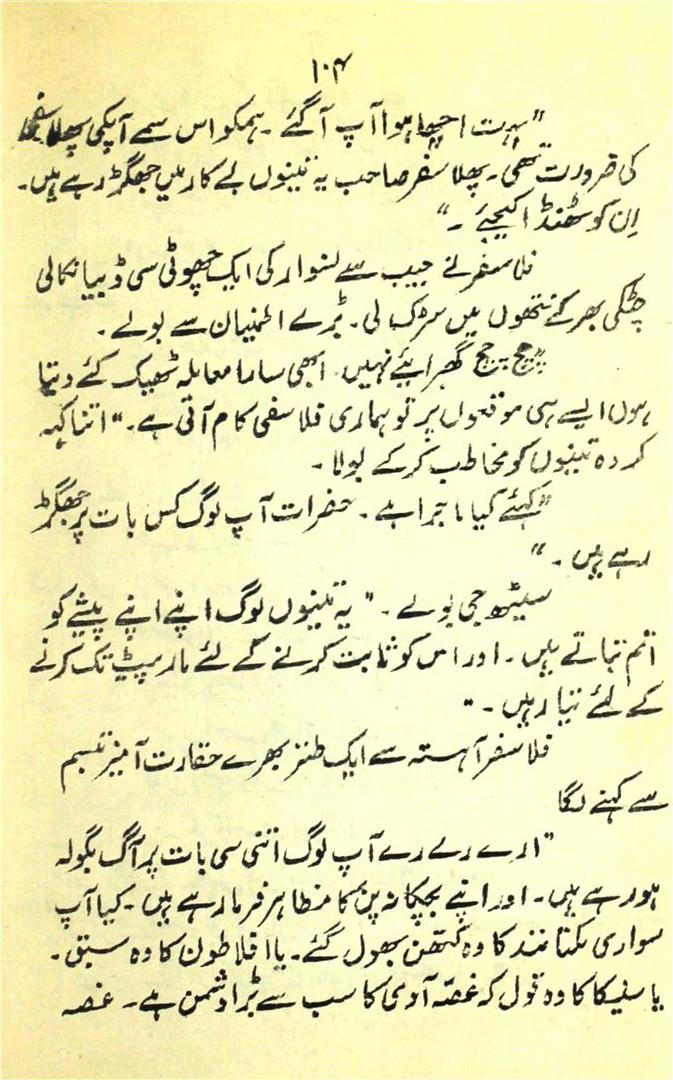 ۱۰۴
"بہت اچھا ہوا آپ آگئے ۔ ہمکو اس سمے آپکی پھلاسفی
کی ضرورت تھی ۔ پھلاسفر صاحب یہ تینوں بے کار میں جھگڑ رہے ہیں ۔
اِن کو ٹھنڈا کیجئے ۔"
فلاسفر نے جیب سے نسوار کی ایک چھوٹی سی ڈبیا نکالی
چٹکی بھر کے نتھوں میں سڑک لی ۔ بڑے اطمنیان سے بولے ۔
"چچ چچ گھبرائیے نہیں ابھی سارا معاملہ ٹھیک کئے دیتا
ہوں ایسے ہی موقعوں پر تو ہماری فلاسفی کام آتی ہے ۔" اتنا کہہ
کر وہ تینوں کو مخاطب کرکے بولا ۔
"کہئے کیا ماجرا ہے ۔ حضرات آپ لوگ کس بات پر جھگڑ
رہے ہیں ۔"
سیٹھ جی بولے ۔ "یہ تینوں لوگ اپنے اپنے پیشے کو
اتم بتاتے ہیں ۔ اور اس کو ثابت کرنے کے لئے مار پیٹ تک کرنے
کے لئے تیار ہیں ۔"
فلاسفر آہستہ سے ایک طنز بھرے حقارت آمیز تبسم
سے کہنے لگا
"ارے رے رے آپ لوگ اتنی سی بات پر آگ بگولہ
ہو رہے ہیں ۔ اور اپنے بچپکانہ پن کا مظاہر فرما رہے ہیں ۔ کیا آپ
سواری مکتانند کا وہ کتھن بھول گئے ۔ یا افلاطون کا وہ سبق ۔
یا سنیکا کا وہ قول کہ غصّہ آدمی کا سب سے بڑا دشمن ہے ۔ غصہ